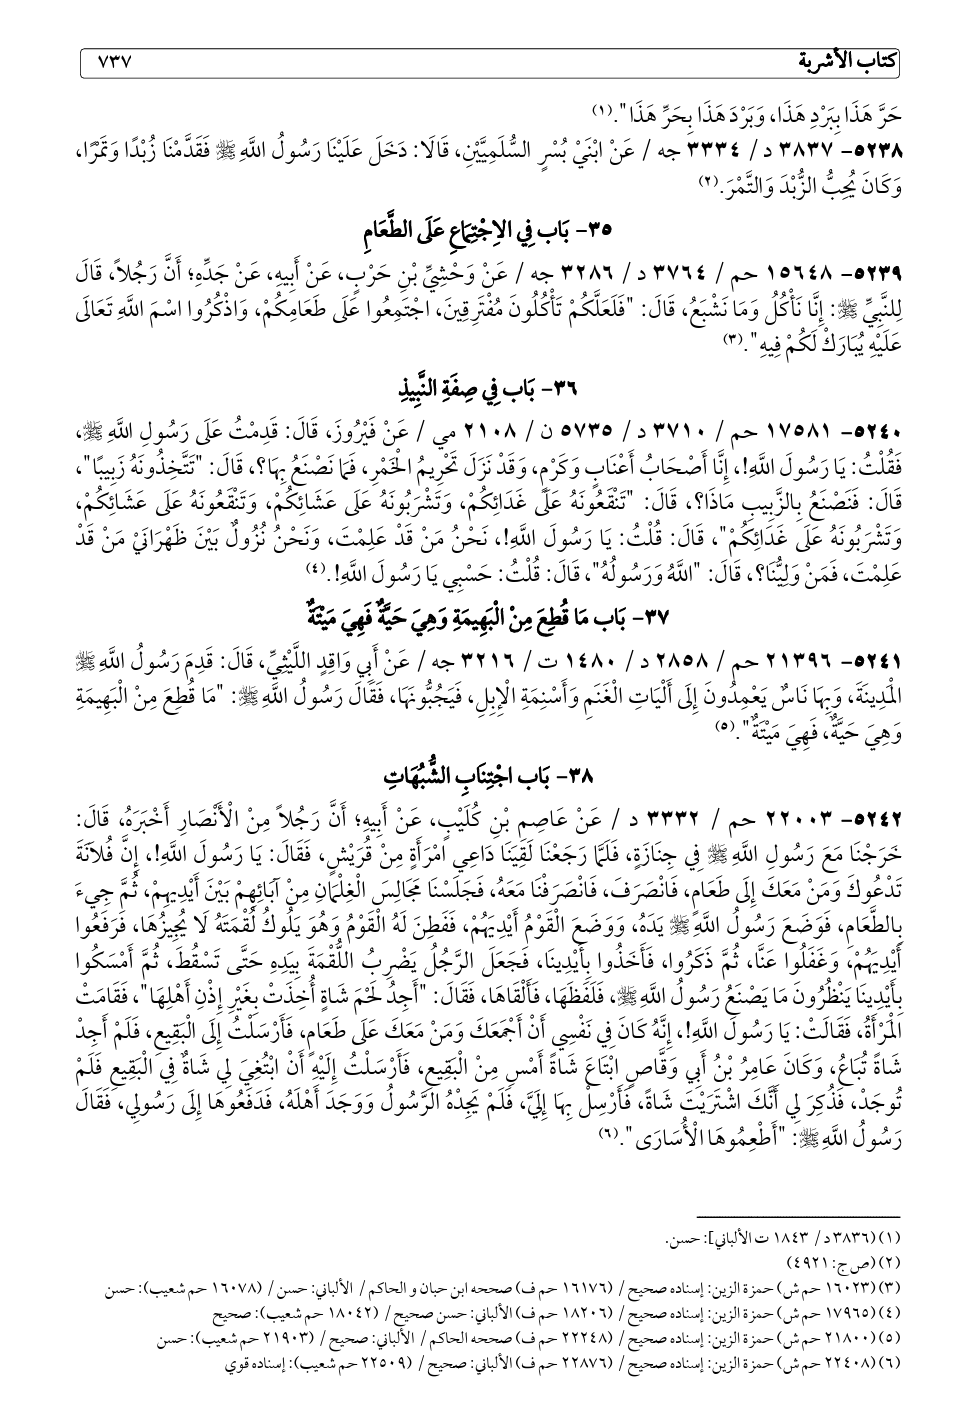 كتاب الأشربة ٧٣٧
حَرَّ هَذَا بِبَرْدِ هَذَا، وَبَرْدَ هَذَا بِحَرِّ هَذَا". (١)
٥٢٣٨- ٣٨٣٧ د/ ٣٣٣٤ جه / عَنْ ابْنَيْ بُسْرٍ السُّلَمِيَّيْنِ، قَالَا: دَخَلَ عَلَيْنَا رَسُولُ اللَّهِ ﷺ فَقَدَّمْنَا زُبْدًا وَتَمْرًا،
وَكَانَ يُحِبُّ الزُّبْدَ وَالتَّمْرَ. (٢)
٣٥- بَاب فِي الِاجْتِمَاعِ عَلَى الطَّعَامِ
٥٢٣٩- ١٥٦٤٨ حم / ٣٧٦٤ د/ ٣٢٨٦ جه / عَنْ وَحْشِيِّ بْنِ حَرْبٍ، عَنْ أَبِيهِ، عَنْ جَدِّهِ؛ أَنَّ رَجُلاً، قَالَ
لِلنَّبِيِّ ﷺ: إِنَّا نَأْكُلُ وَمَا نَشْبَعُ، قَالَ: "فَلَعَلَّكُمْ تَأْكُلُونَ مُفْتَرِقِينَ، اجْتَمِعُوا عَلَى طَعَامِكُمْ، وَاذْكُرُوا اسْمَ اللَّهِ تَعَالَى
عَلَيْهِ يُبَارَكْ لَكُمْ فِيهِ". (٣)
٣٦- بَاب فِي صِفَةِ النَّبِيذِ
٥٢٤٠- ١٧٥٨١ حم / ٣٧١٠ د/ ٥٧٣٥ ن / ٢١٠٨ مي / عَنْ فَيْرُوزَ، قَالَ: قَدِمْتُ عَلَى رَسُولِ اللَّهِ ﷺ،
فَقُلْتُ: يَا رَسُولَ اللَّهِ!، إِنَّا أَصْحَابُ أَعْنَابٍ وَكَرْمٍ، وَقَدْ نَزَلَ تَحْرِيمُ الْخَمْرِ، فَمَا نَصْنَعُ بِهَا؟، قَالَ: "تَتَّخِذُونَهُ زَبِيبًا"،
قَالَ: فَنَصْنَعُ بِالزَّبِيبِ مَاذَا؟، قَالَ: "تَنْقَعُونَهُ عَلَى غَدَائِكُمْ، وَتَشْرَبُونَهُ عَلَى عَشَائِكُمْ، وَتَنْقَعُونَهُ عَلَى عَشَائِكُمْ،
وَتَشْرَبُونَهُ عَلَى غَدَائِكُمْ"، قَالَ: قُلْتُ: يَا رَسُولَ اللَّهِ!، نَحْنُ مَنْ قَدْ عَلِمْتَ، وَنَحْنُ نُزُولٌ بَيْنَ ظَهْرَانَيْ مَنْ قَدْ
عَلِمْتَ، فَمَنْ وَلِيُّنَا؟، قَالَ: "اللَّهُ وَرَسُولُهُ"، قَالَ: قُلْتُ: حَسْبِي يَا رَسُولَ اللَّهِ!. (٤)
٣٧- بَاب مَا قُطِعَ مِنْ الْبَهِيمَةِ وَهِيَ حَيَّةٌ فَهِيَ مَيْتَةٌ
٥٢٤١- ٢١٣٩٦ حم / ٢٨٥٨ د/ ١٤٨٠ ت / ٣٢١٦ جه / عَنْ أَبِي وَاقِدٍ اللَّيْثِيِّ، قَالَ: قَدِمَ رَسُولُ اللَّهِ ﷺ
الْمَدِينَةَ، وَبِهَا نَاسٌ يَعْمِدُونَ إِلَى أَلْيَاتِ الْغَنَمِ وَأَسْنِمَةِ الْإِبِلِ، فَيَجُبُّونَهَا، فَقَالَ رَسُولُ اللَّهِ ﷺ: "مَا قُطِعَ مِنْ الْبَهِيمَةِ
وَهِيَ حَيَّةٌ، فَهِيَ مَيْتَةٌ". (٥)
٣٨- بَاب اجْتِنَابِ الشُّبُهَاتِ
٥٢٤٢- ٢٢٠٠٣ حم / ٣٣٣٢ د / عَنْ عَاصِمِ بْنِ كُلَيْبٍ، عَنْ أَبِيهِ؛ أَنَّ رَجُلاً مِنْ الْأَنْصَارِ أَخْبَرَهُ، قَالَ:
خَرَجْنَا مَعَ رَسُولِ اللَّهِ ﷺ فِي جِنَازَةٍ، فَلَمَّا رَجَعْنَا لَقِيَنَا دَاعِي امْرَأَةٍ مِنْ قُرَيْشٍ، فَقَالَ: يَا رَسُولَ اللَّهِ!، إِنَّ فُلَانَةَ
تَدْعُوكَ وَمَنْ مَعَكَ إِلَى طَعَامٍ، فَانْصَرَفَ، فَانْصَرَفْنَا مَعَهُ، فَجَلَسْنَا مَجَالِسَ الْغِلْمَانِ مِنْ آبَائِهِمْ بَيْنَ أَيْدِيهِمْ، ثُمَّ جِيءَ
بِالطَّعَامِ، فَوَضَعَ رَسُولُ اللَّهِ ﷺ يَدَهُ، وَوَضَعَ الْقَوْمُ أَيْدِيَهُمْ، فَفَطِنَ لَهُ الْقَوْمُ وَهُوَ يَلُوكُ لُقْمَتَهُ لَا يُجِيزُهَا، فَرَفَعُوا
أَيْدِيَهُمْ، وَغَفَلُوا عَنَّا، ثُمَّ ذَكَرُوا، فَأَخَذُوا بِأَيْدِينَا، فَجَعَلَ الرَّجُلُ يَضْرِبُ اللُّقْمَةَ بِيَدِهِ حَتَّى تَسْقُطَ، ثُمَّ أَمْسَكُوا
بِأَيْدِينَا يَنْظُرُونَ مَا يَصْنَعُ رَسُولُ اللَّهِ ﷺ، فَلَفَظَهَا، فَأَلْقَاهَا، فَقَالَ: "أَجِدُ لَحْمَ شَاةٍ أُخِذَتْ بِغَيْرِ إِذْنِ أَهْلِهَا"، فَقَامَتْ
الْمَرْأَةُ، فَقَالَتْ: يَا رَسُولَ اللَّهِ!، إِنَّهُ كَانَ فِي نَفْسِي أَنْ أَجْمَعَكَ وَمَنْ مَعَكَ عَلَى طَعَامٍ، فَأَرْسَلْتُ إِلَى الْبَقِيعِ، فَلَمْ أَجِدْ
شَاةً تُبَاعُ، وَكَانَ عَامِرُ بْنُ أَبِي وَقَّاصٍ ابْتَاعَ شَاةً أَمْسِ مِنْ الْبَقِيعِ، فَأَرْسَلْتُ إِلَيْهِ أَنْ ابْتُغِيَ لِي شَاةٌ فِي الْبَقِيعِ فَلَمْ
تُوجَدْ، فَذُكِرَ لِي أَنَّكَ اشْتَرَيْتَ شَاةً، فَأَرْسِلْ بِهَا إِلَيَّ، فَلَمْ يَجِدْهُ الرَّسُولُ وَوَجَدَ أَهْلَهُ، فَدَفَعُوهَا إِلَى رَسُولِي، فَقَالَ
رَسُولُ اللَّهِ ﷺ: "أَطْعِمُوهَا الْأُسَارَى". (٦)
(١) (٣٨٣٦ د/ ١٨٤٣ ت الألباني]: حسن.
(٢) (ص ج: ٤٩٢١)
(٣) (١٦٠٢٣ حم ش) حمزة الزين: إسناده صحيح / (١٦١٧٦ حم ف) صححه ابن حبان و الحاكم / الألباني: حسن / (١٦٠٧٨ حم شعيب): حسن
(٤) (١٧٩٦٥ حم ش) حمزة الزين: إسناده صحيح / (١٨٢٠٦ حم ف) الألباني: حسن صحيح / (١٨٠٤٢ حم شعيب): صحيح
(٥) (٢١٨٠٠ حم ش) حمزة الزين: إسناده صحيح / (٢٢٢٤٨ حم ف) صححه الحاكم / الألباني: صحيح / (٢١٩٠٣ حم شعيب): حسن
(٦) (٢٢٤٠٨ حم ش) حمزة الزين: إسناده صحيح / (٢٢٨٧٦ حم ف) الألباني: صحيح / (٢٢٥٠٩ حم شعيب): إسناده قوي